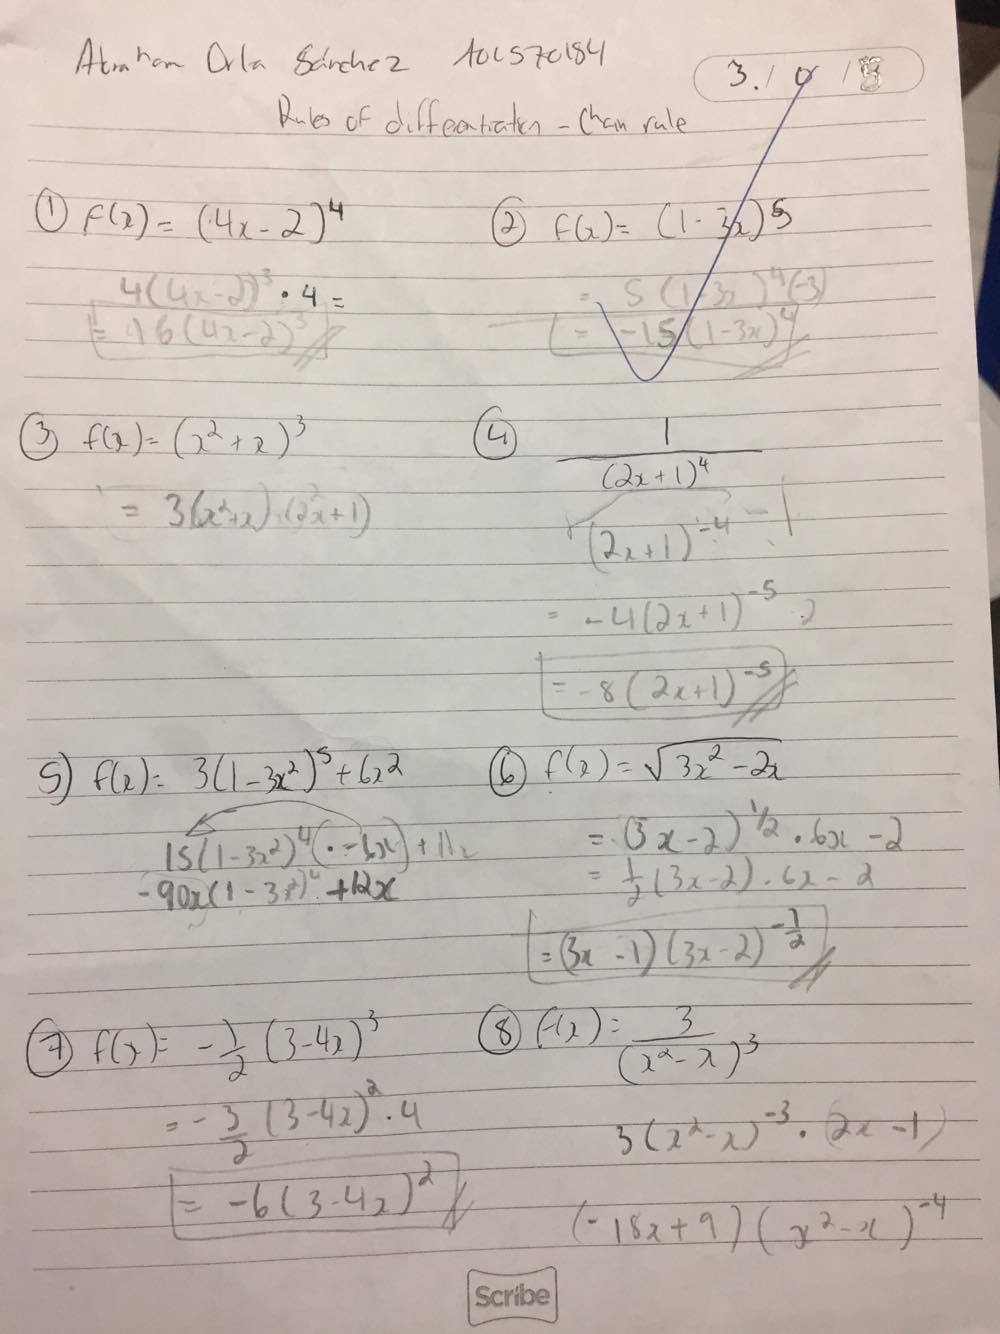 Abraham Orla Sánchez A01570184
3.1
Rules of differentiation - Chain rule
① f(x) = (4x - 2)^4
4(4x-2)^3 • 4 =
= 16(4x-2)^3
② f(x) = (1-3x)^5
= 5(1-3x)^4(-3)
= -15(1-3x)^4
③ f(x) = (x^2 + x)^3
= 3(x^2+x)^2 (2x+1)
④ 1/(2x+1)^4
(2x+1)^-4
= -4(2x+1)^-5 · 2
= -8(2x+1)^-5
5) f(x) = 3(1-3x^2)^5 + 6x^2
15(1-3x^2)^4(·-6x) + 12x
-90x(1-3x^2)^4 + 12x
⑥ f(x) = √3x^2 - 2x
= (3x-2)^1/2 • 6x - 2
= 1/2 (3x-2) · 6x - 2
= (3x-1)(3x-2)^-1/2
⑦ f(x) = -1/2 (3-4x)^3
= -3/2 (3-4x)^2 · 4
= -6(3-4x)^2
⑧ f(x) = 3/(x^2-x)^3
3(x^2-x)^-3 • (2x-1)
(-18x+9)(x^2-x)^-4
Scribe